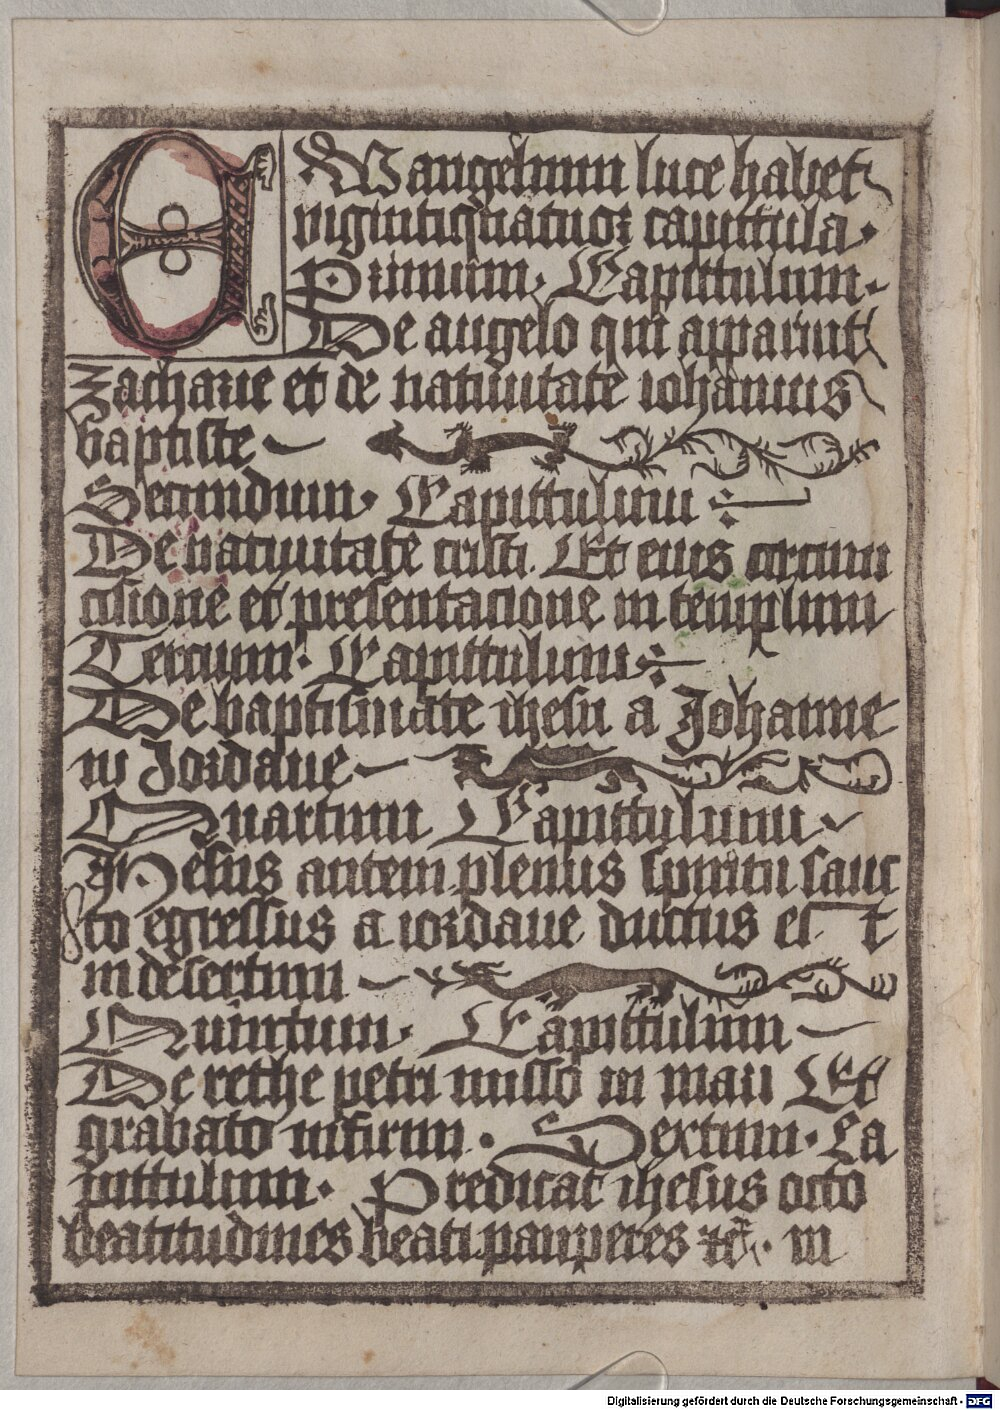 EWangelium luce habet
vigintiquatuor capittula.
Primum. Capittulum.
De angelo qui apparuit
zacharie et de natiuitate iohannis
baptiste
Secundum. Capittulum
De natiuitate cristi. Et eius circum
cisione et presentacione in templum
Tercium. Capittulum
De baptismate ihesu a Johanne
in Jordane
Quartum Capittulum
Ihesus autem plenus spiritu sanc
to egressus a iordane ductus est
in desertum
Quintum. Capittulum
De rethe petri misso in mari Et
grabato infirmi. Sextum. Ca
pittulum. Predicat ihesus octo
beatitudines beati pauperes et̄c. in
Digitalisierung gefördert durch die Deutsche Forschungsgemeinschaft - DFG